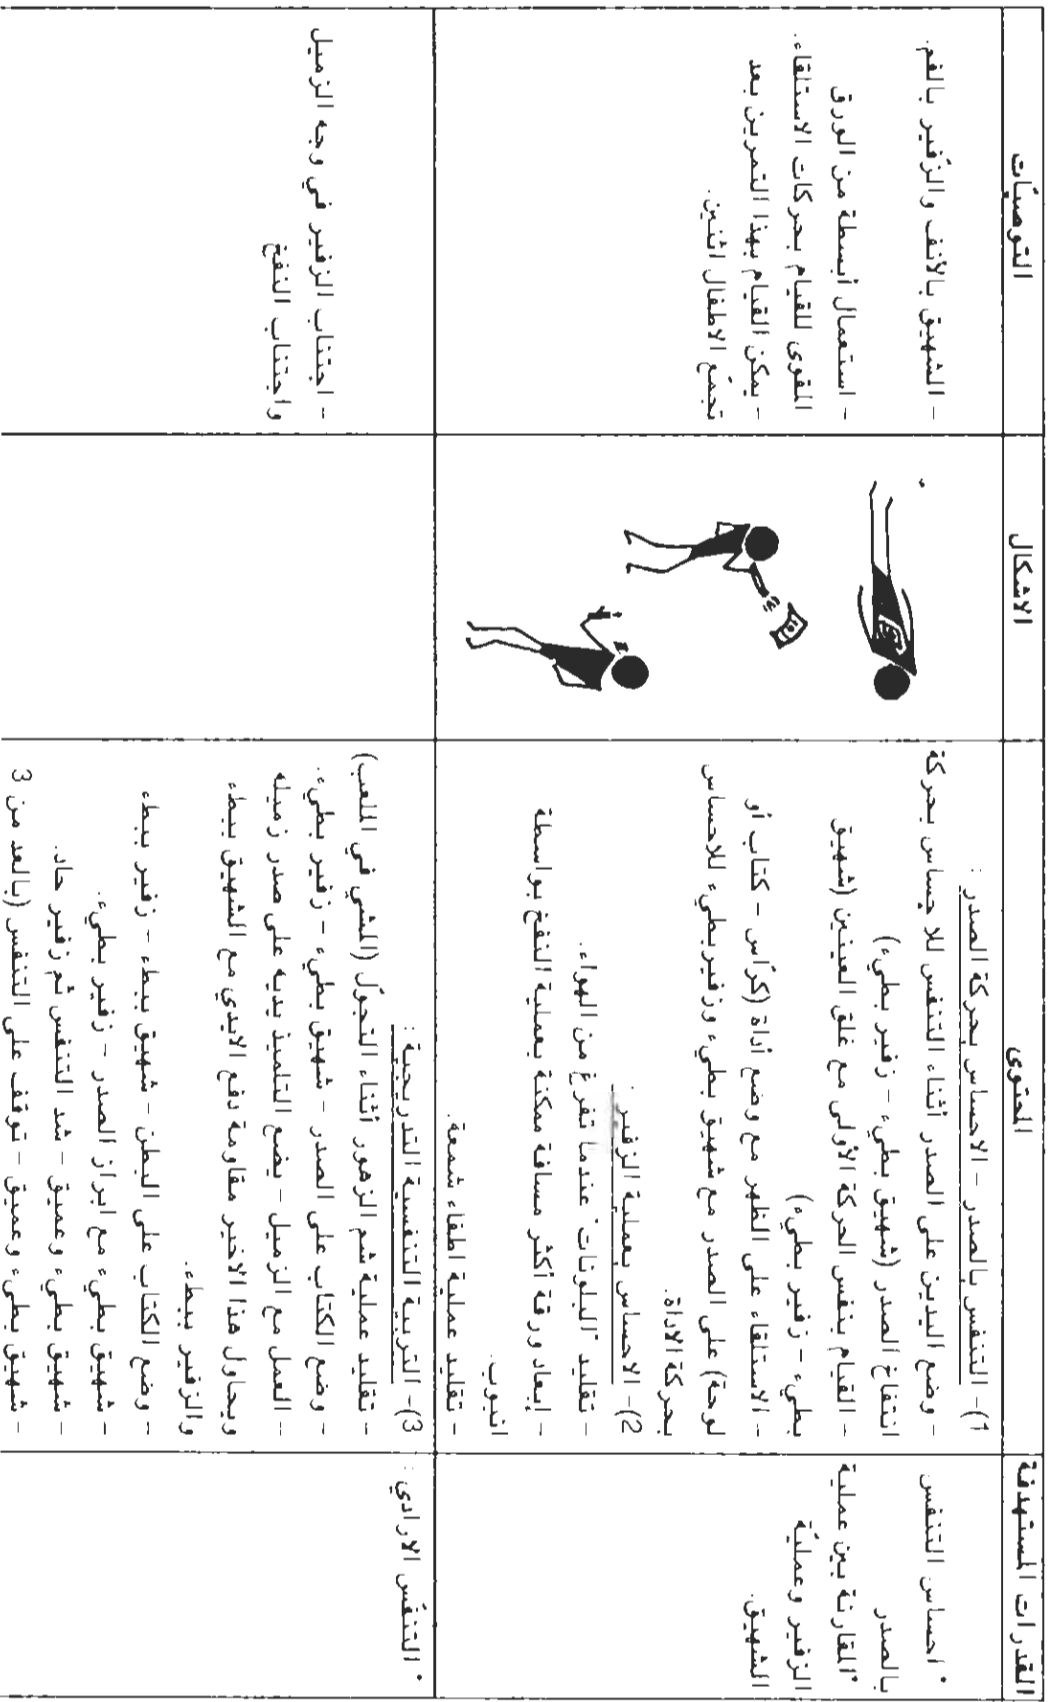 القدرات المستهدفة
المحتوى
الاشكال
التوصيّات
• احساس التنفس
بالصدر
• المقارنة بين عملية
الزفير وعمليّة
الشهيق.
1)- التنفس بالصدر - الاحساس بحركة الصدر :
- وضع اليدين على الصدر أثناء التنفس للاحساس بحركة
انتفاخ الصدر (شهيق بطيء - زفير بطيء)
- القيام بنفس الحركة الأولى مع غلق العينين (شهيق
بطيء - زفير بطيء)
- الاستلقاء على الظهر مع وضع أداة (كرّاس - كتاب أو
لوحة) على الصدر مع شهيق بطيء وزفير بطيء للاحساس
بحركة الاداة.
2)- الاحساس بعملية الزفير :
- تقليد "البلونات" عندما تفرغ من الهواء.
- إبعاد ورقة أكثر مسافة ممكنة بعملية النفخ بواسطة
انبوب.
- تقليد عملية اطفاء شمعة.
- الشهيق بالأنف والزّفير بالفم.
- استعمال أبسطة من الورق
المقوى للقيام بحركات الاستلقاء.
- يمكن القيام بهذا التمرين بعد
تجمّع الاطفال اثنين.
• التنفّس الارادي :
3)- التربية التنفسية التدريجية :
- تقليد عملية شم الزهور أثناء التجوّل (المشي في الملعب)
- وضع الكتاب على الصدر - شهيق بطيء - زفير بطيء.
- العمل مع الزميل - يضع التلميذ يديه على صدر زميله
ويحاول هذا الاخير مقاومة دفع الايدي مع الشهيق ببطء
والزفير ببطء.
- وضع الكتاب على البطن - شهيق ببطء - زفير ببطء
- شهيق بطيء مع ابراز الصدر - زفير بطيء.
- شهيق بطيء وعميق - شد التنفس ثم زفير حاد.
- شهيق بطيء وعميق - توقف على التنفس (بالعد من 3
- اجتناب الزفير في وجه الزميل
واجتناب النفخ